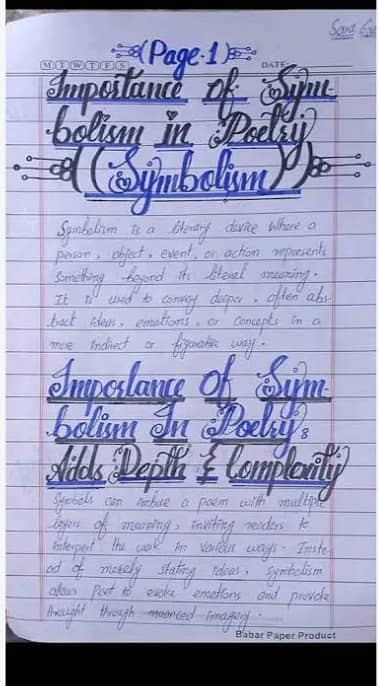 Sara
(Page-1)
M T W T F S
DATE:
Importance of Sym-
bolism in Poetry
((Symbolism))
Symbolism is a literary device where a
person, object, event, or action represents
something beyond its literal meaning.
It is used to convey deeper, often abs-
tract ideas, emotions, or concepts in a
more indirect or figurative way.
Importance Of Sym-
bolism In Poetry:
Adds Depth & Complexity
Symbols can imbue a poem with multiple
layers of meaning, inviting readers to
interpret the work in various ways. Inste-
ad of merely stating ideas, symbolism
allows Poet to evoke emotions and provoke
thought through nuanced imagery.
Babar Paper Product